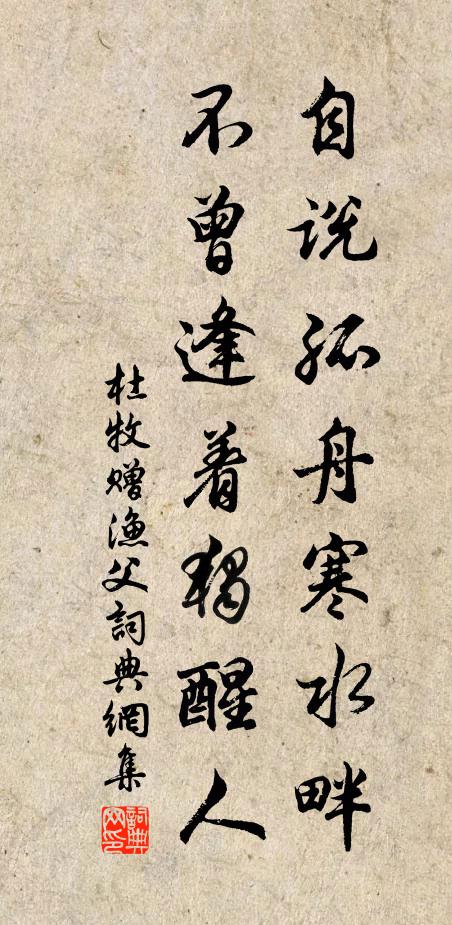 自説孤舟寒水畔
不曾逢着獨醒人
杜牧贈漁父詞典網集
詞典
网印